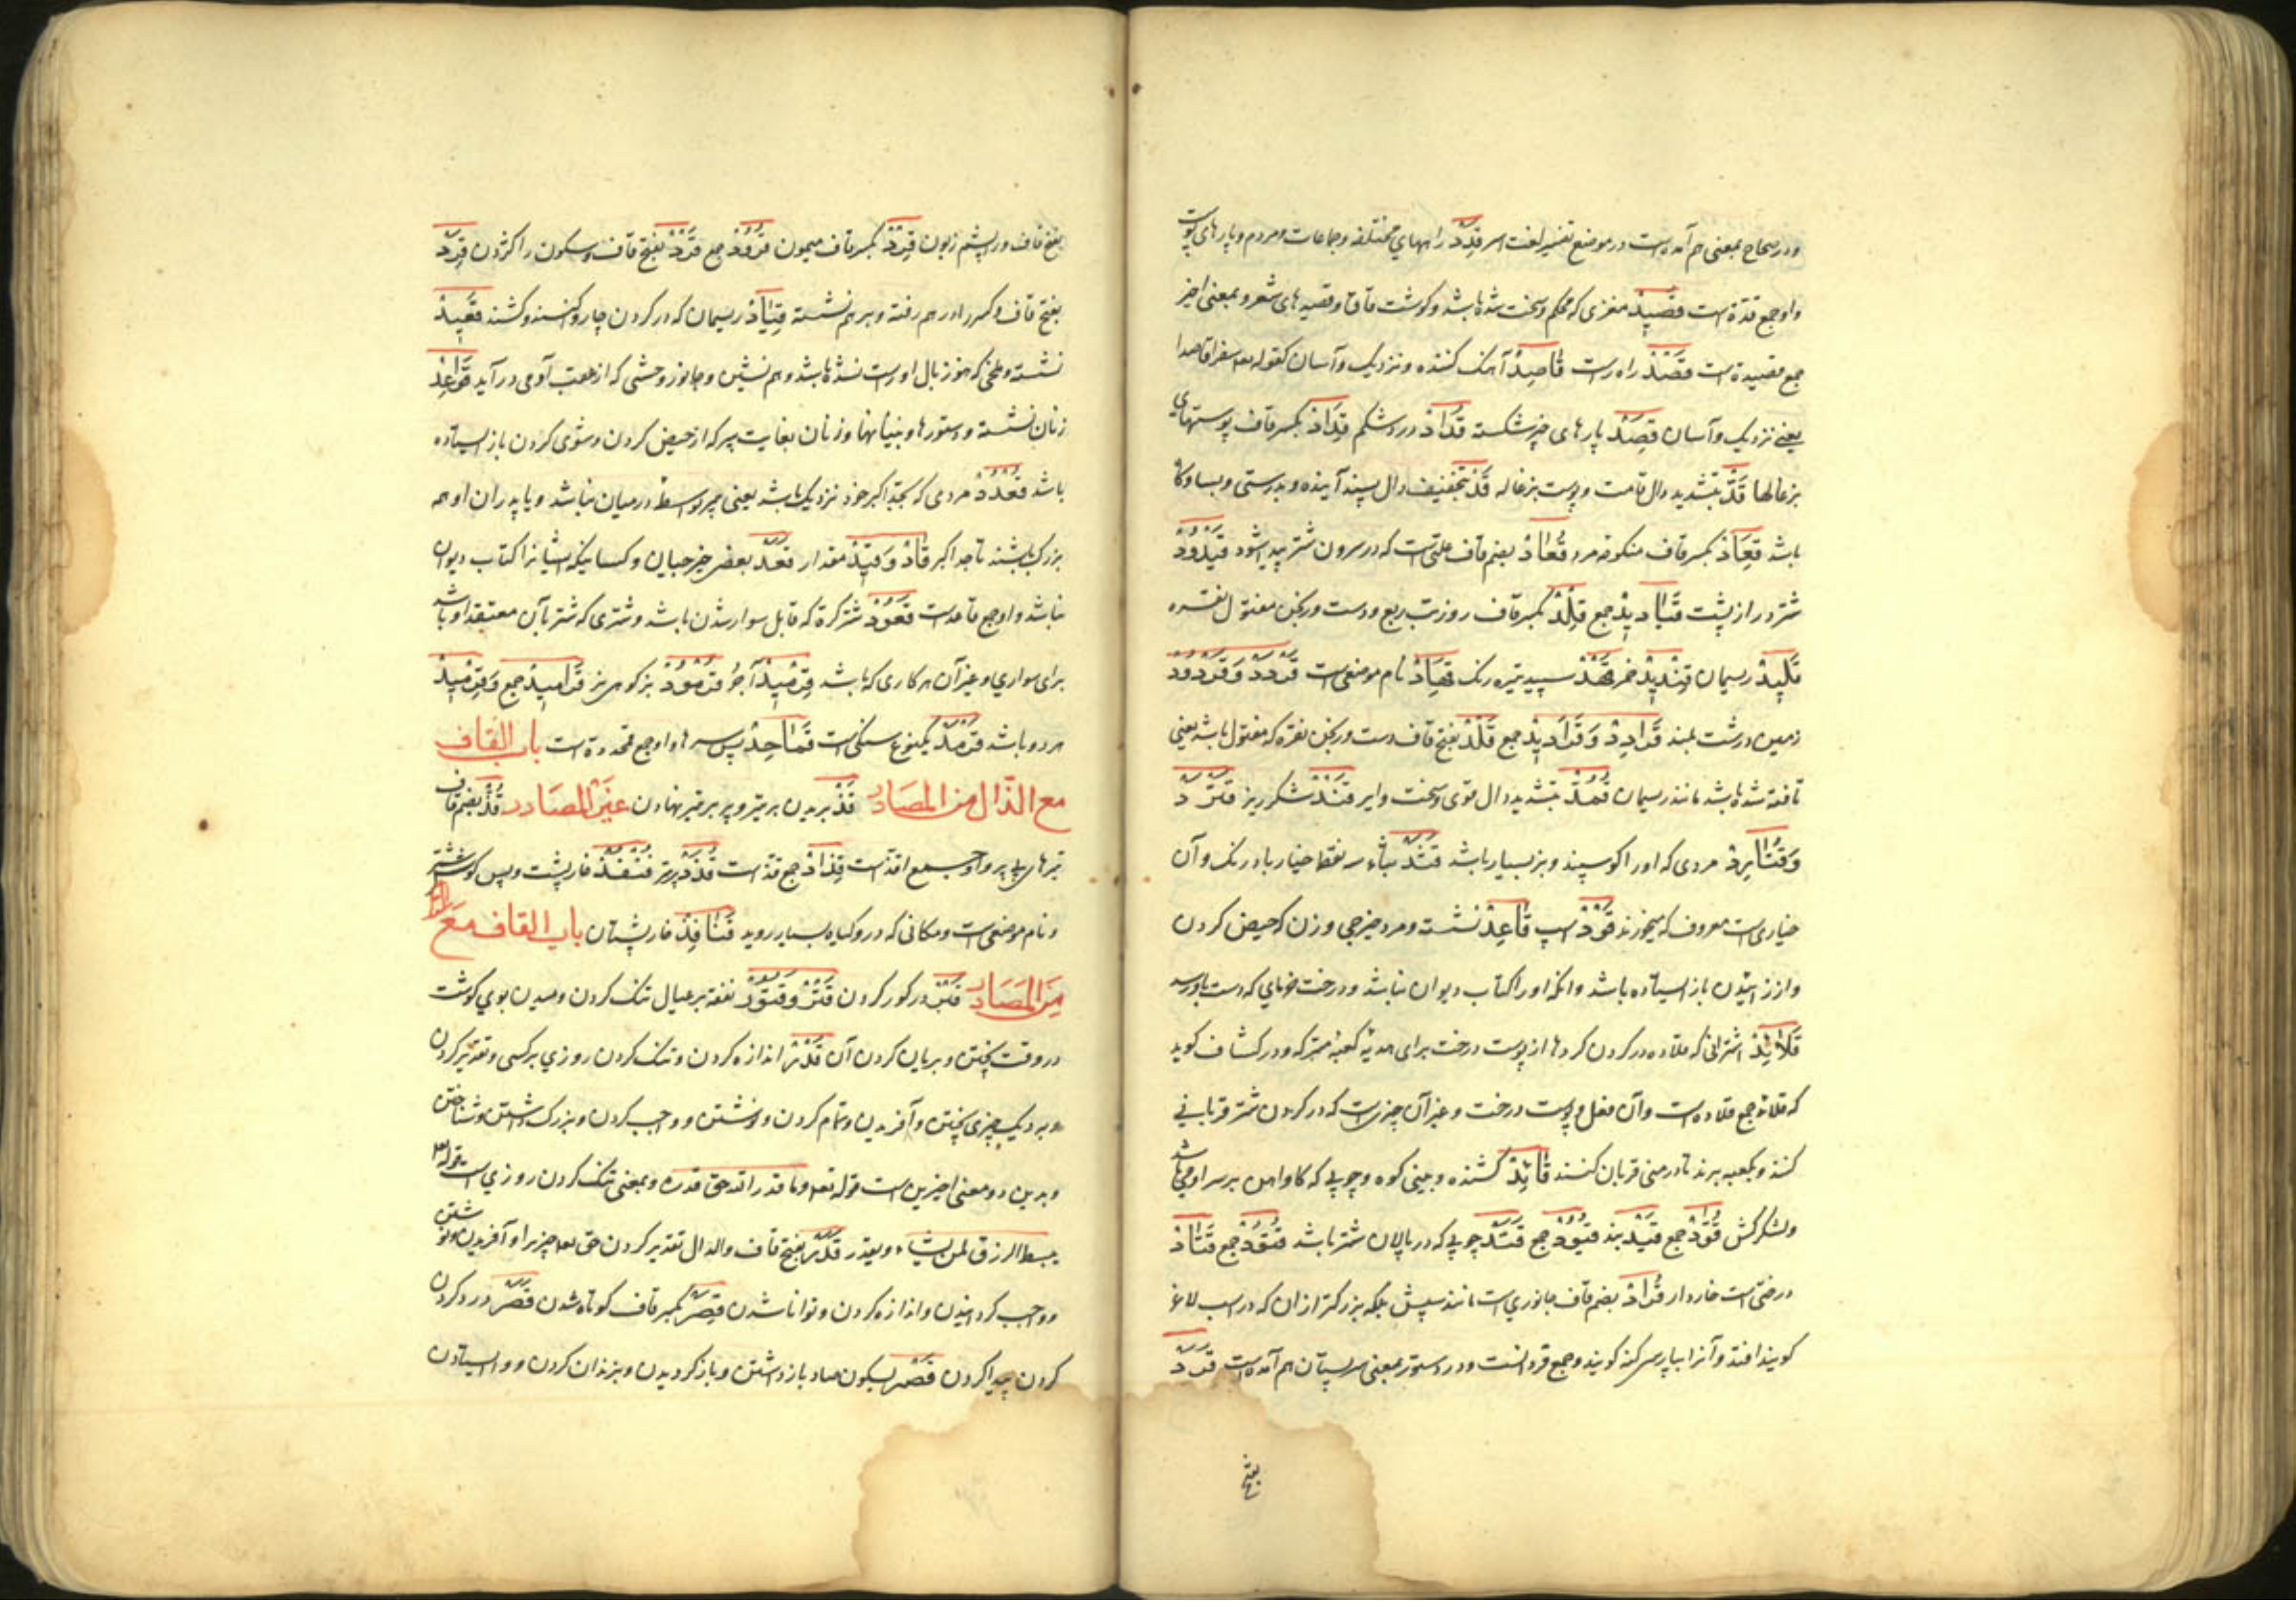 و در صحاح بمعنی هم آمده است در موضع تفسیر لغت اسر قِدَدْ راههای مختلفه و جماعات و مردم و پارهای پوست
و او جمع قدّة است قَصِیدْ مغزی که محکم و سخت شده باشد و گوشت قاق و قصیدهای شعر و بمعنی اخیر
جمع قصیدة است قَصْدْ راه راست قَاصِدْ آهنگ کننده و نزدیک و آسان کقوله تعه سفرا قاصدا
یعنی نزدیک و آسان قِصَدْ پارهای چیز شکسته قُدَادْ درد شکم قِدَادْ بکسر قاف پوستهای
بزغالها قَدّْ بتشدید دال قامت و پوست بزغاله قَدْ بتخفیف دال پسند آینده و بدرستی و بسا و گاه
باشد قِعَادْ بکسر قاف منکوحه مرد قُعَادْ بضم قاف علتی است که در سرون شتر پیدا شود قَیْدُودْ
شتر دراز پشت قَیَادِیدْ جمع قِلْدْ بکسر قاف روز تب ربع و دست ورنجن مفتول نقره
قَلِیدْ ریسمان قِنْدِیدْ خمر قَهْدْ سپید تیره رنک قِهَادْ نام موضعی است قَرْدَدْ وَ قَرْدُودْ
زمین درشت بلند قَرَادِدْ وَ قَرَادِیدْ جمع قَلْدْ بفتح قاف دست ورنجن نقره که مفتول باشد یعنی
تافته شده باشد مانند ریسمان قُمُدّْ بتشدید دال قوی و سخت و ایر قَنْدْ شکر ریز قَثْرَدْ
وَ قُثَارِدْ مردی که او را کوسپند و بز بسیار باشد قَثَدْ بثاء سه نقطه خیار بادرنک و آن
خیاری است معروف که میخورند قَوْدْ اسپ قَاعِدْ نشسته و مرد خیز جی و زن که حیض کردن
و از زائیدن باز ایستاده باشد و آنکه او را کتاب دیوان نباشد و درخت خرمای که دست باو رسد
قَلَائِدْ اشترانی که قلاده در کردن کرده از پوست درخت برای هدیهٔ کعبه متبرکه و در کشاف کوید
که قلائد جمع قلاده است و آن نعل و پوست درخت و غیر آن چیزی است که در کردن شتر قربانی
کنند و بکعبه برند تا در منی قربان کنند قَائِدْ کشنده و بینی کوه و چوبی که کاو اهن بر سر او می باشد
و لشکر کش قُوَّدْ جمع قَیْدْ بند قُیُودْ جمع قَتَدْ چوبی که در پالان شتر باشد قُتُودْ جمع قَتَادْ
درختی است خاردار قُرَادْ بضم قاف جانوری است مانند سپش بلکه بزرکتر از ان که در اسب لاغر
کویند افتد و آنرا بپارسی کنه کویند و جمع قرد است و در دستور بمعنی سر پستان هم آمده است قَرَدْ
بفتح
بفتح قاف و را پشم زبون قِرْدْ بکسر قاف میمون قُرُودْ جمع قَرْدْ بفتح قاف و سکون را کردن قَرِدْ
بفتح قاف و کسر را در هم رفته و بر هم نشسته قِیَادْ ریسمان که در کردن چاروا کنند و کشند قَعِیدْ
نشسته و ملخی که هنوز بال او راست نشده باشد و هم نشین و جانور وحشی که از عقب آدمی در آید قَوَاعِدْ
زنان نشسته و دستورها و بنیانها و زنان بغایت پیر که از حیض کردن و شوی کردن باز ایستاده
باشد قُعْدُدْ مردی که بجد اکبر خود نزدیک باشد یعنی پیر و اسط در میان نباشد و یا پدران او همه
بزرک باشند تا جد اکبر قَادْ وَ قِیدْ مقدار قَعَدْ بعضی خیز جیان و کسانیکه ایشانرا کتاب دیوان
نباشد و او جمع قاعد است قَعُودْ شتر کره که قابل سوار شدن باشد و شتری که شتربان معتقد او باشد
برای سواری و غیر آن هر کاری که باشد قِرْمِیدْ آجر قُرْمُودْ بز کوهی نر قَرَامِیدْ جمع وَ قِرْمِیدْ
هر دو باشد قَرْمَدْ یکنوع سنکی است قَمَاحِدْ پس سرها و او جمع قمحدوة است باب القاف
مع الذّال من المصَادر قَذّْ بریدن پر تیر و پر بر تیر نهادن غیرُ المصَادر قُذّْ بضم قاف
تیرهای بی پر و او جمع اقذ است قِذَاذْ جمع قذ است قُذَذْ پر تیر قُنْفُذْ خارپشت و پس کوش شتر
و نام موضعی است و مکانی که در و کیاه بسیار روید قَنَافِذْ خارپشتان باب القاف مَعَ الراء
مِنَ المَصَادر قَبْرْ در کور کردن قَتْرْ وَ قُتُورْ نفقه بر عیال تنک کردن و دمیدن بوی کوشت
در وقت پختن و بریان کردن آن قَدْرْ اندازه کردن و تنک کردن روزی بر کسی و تقدیر کردن
و بدیک چیزی پختن و آفریدن و تمام کردن و نوشتن و واجب کردن و بزرک داشتن و شناختن
و بدین دو معنی اخیرین است قوله تعه و ما قدروا الله حق قدره و بمعنی تنک کردن روزی است قوله تعه
یبسط الرزق لمن یشاء و یقدر قَدَرْ بفتح قاف و الدال تقدیر کردن حق تعه چیزی را و آفریدن و نوشتن
و واجب کردانیدن و اندازه کردن و توانا شدن قِصَرْ بکسر قاف کوتاه شدن قَصَرْ درد کردن
کردن پیدا کردن قَصْرْ بسکون صاد باز داشتن و باز کردیدن و بزندان کردن و وا ایستادن